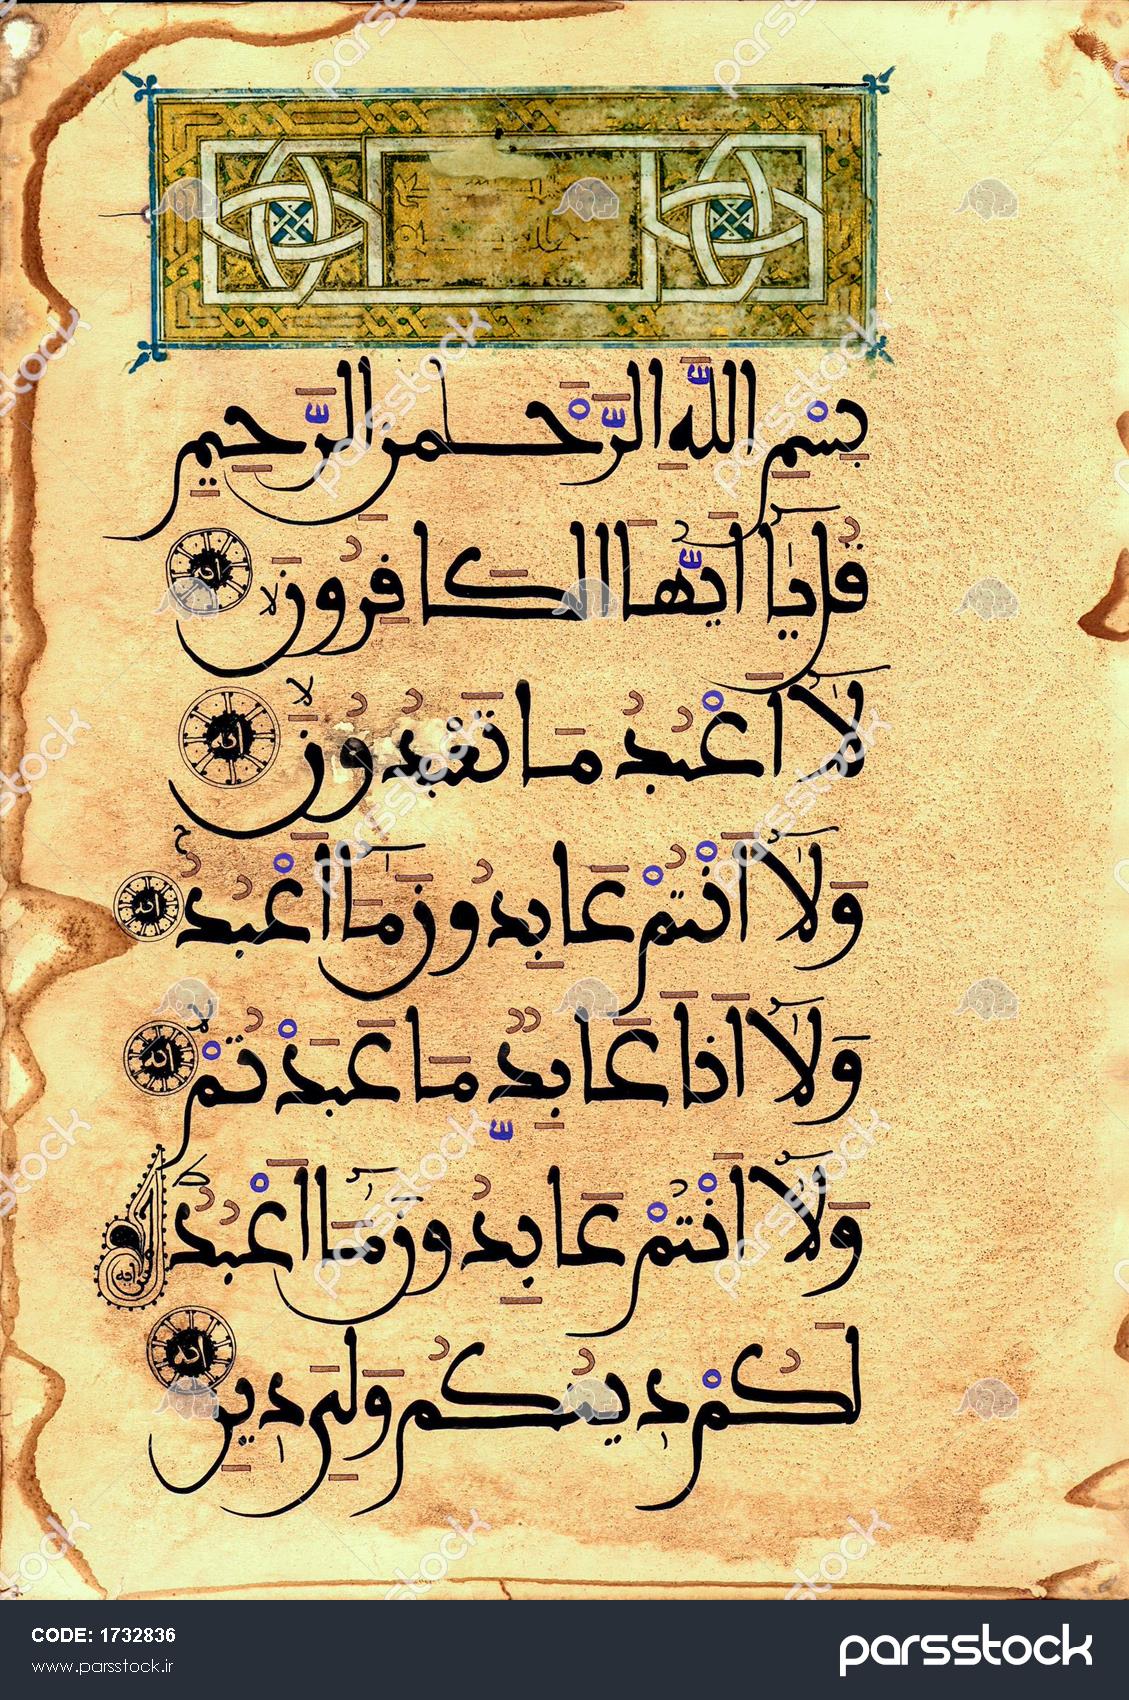 بِسْمِ اللَّهِ الرَّحْمَنِ الرَّحِيمِ
قُلْ يَا أَيُّهَا الْكَافِرُونَ
لَا أَعْبُدُ مَا تَعْبُدُونَ
وَلَا أَنْتُمْ عَابِدُونَ مَا أَعْبُدُ
وَلَا أَنَا عَابِدٌ مَا عَبَدْتُمْ
وَلَا أَنْتُمْ عَابِدُونَ مَا أَعْبُدُ
لَكُمْ دِينُكُمْ وَلِيَ دِينِ
CODE: 1732836
www.parsstock.ir
parsstock